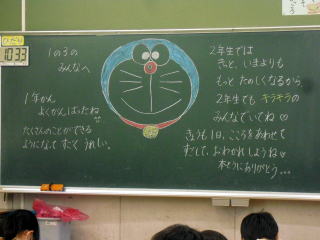 1の3の
みんなへ
1年かん
よくがんばったね
たくさんのことができる
ようになって すごく うれしい。
2年生では
きっと、いまよりも
もっと たのしくなるから
2年生でも キラキラの
みんなでいてね
きょうも1日、こころをあわせて
すごして、おわかれしようね
本とうにありがとう...
1033